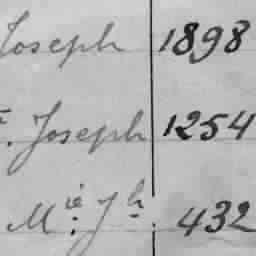 Joseph 1898
t. Joseph 1254
M.ie J.h 432